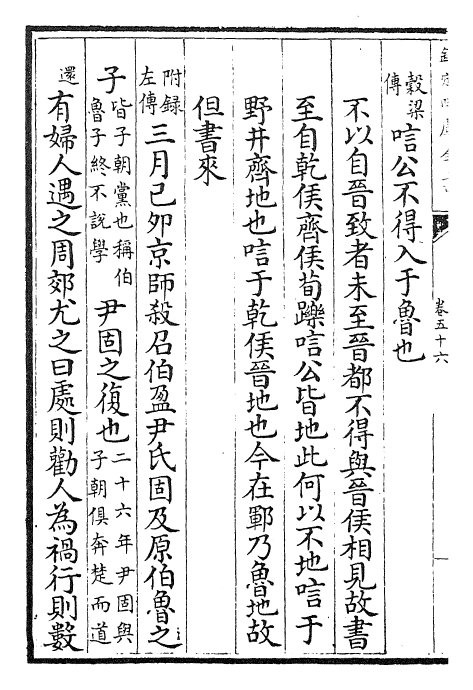 欽定四庫全書
卷五十六
穀梁傳 唁公不得入于魯也
不以自晉致者未至晉都不得與晉侯相見故書
至自乾侯齊侯荀躒唁公皆地此何以不地唁于
野井齊地也唁于乾侯晉地也今在鄆乃魯地故
但書來
附録左傳 三月己卯京師殺召伯盈尹氏固及原伯魯之
子 皆子朝黨也稱伯魯子終不說學 尹固之復也 二十六年尹固與子朝俱奔楚而道
還 有婦人遇之周郊尤之曰處則勸人為禍行則數